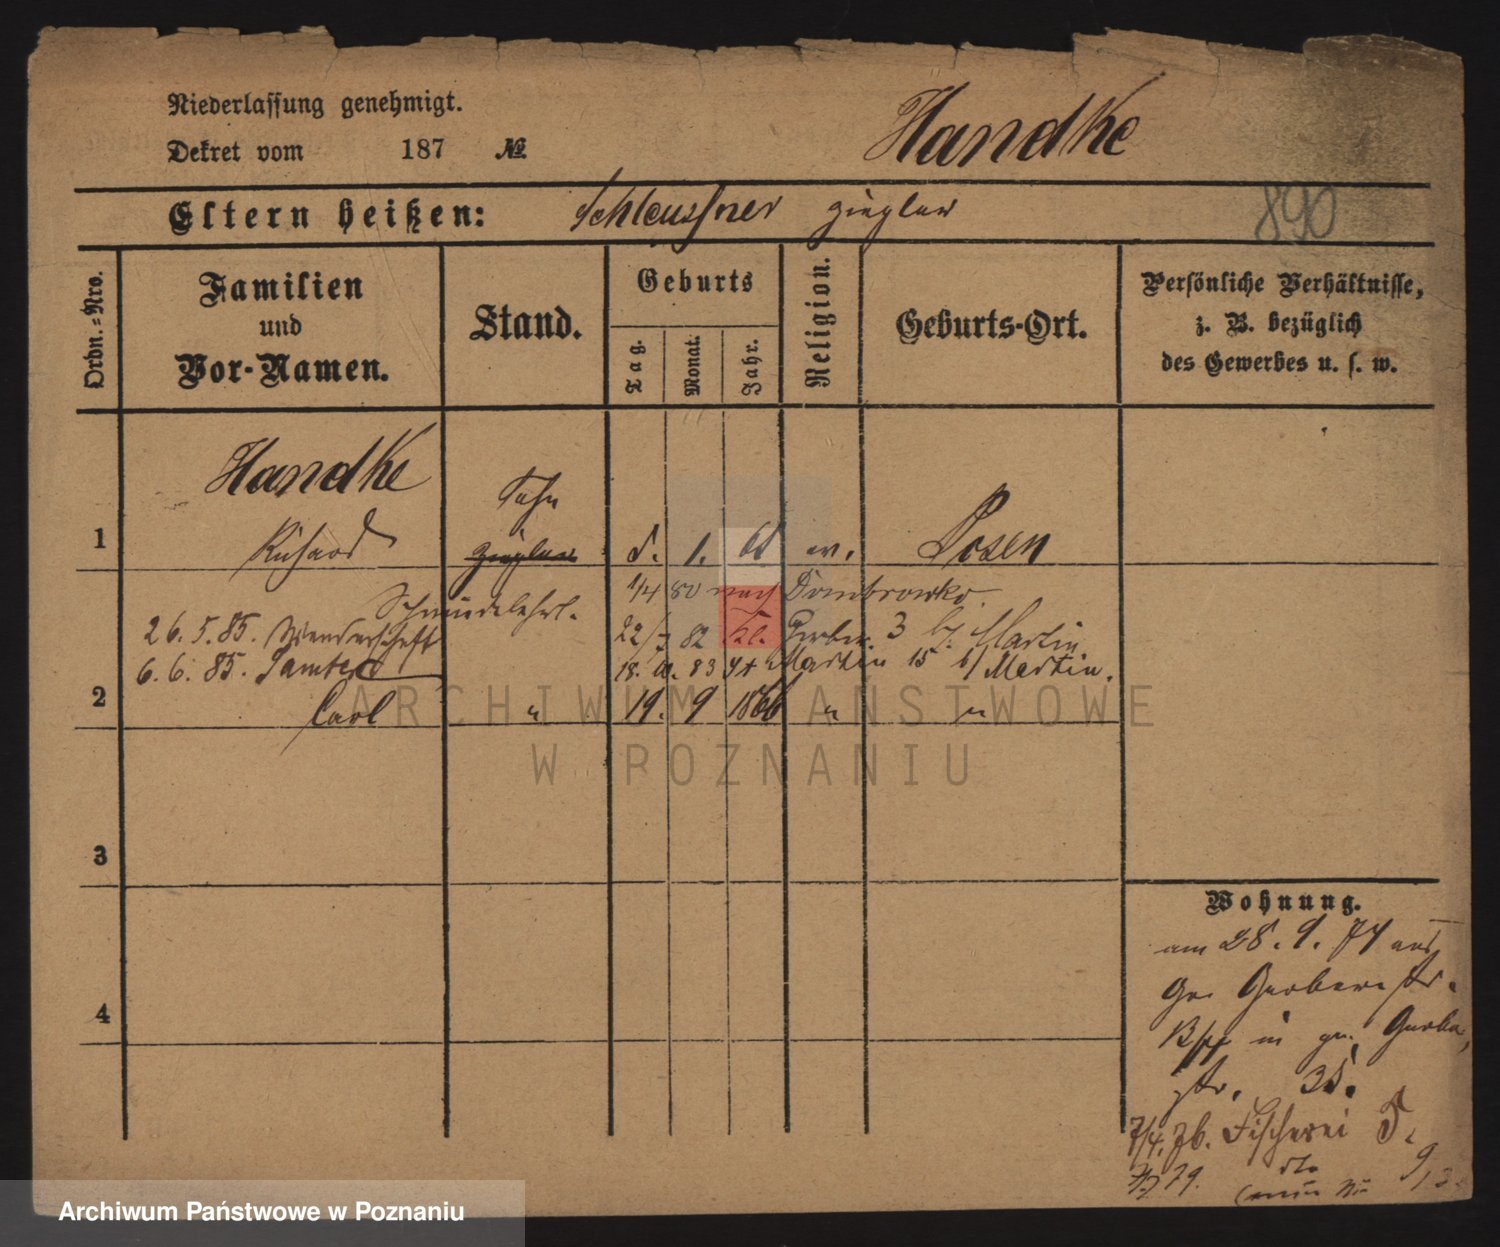 Niederlassung genehmigt.
Dekret vom 187 №
Handke
Eltern heißen: Schleussner Ziegler
890
Ordn.=Nro.
Familien und Vor-Namen.
Stand.
Geburts
Tag.
Monat.
Jahr.
Religion.
Geburts-Ort.
Persönliche Verhältnisse,
z. B. bezüglich
des Gewerbes u. s. w.
Handke
Sohn
1 Richard Ziegler 5. 1. 61 ev. Posen
1/4 80 nach Dombrowko.
Schmiedelehrl.
26. 5. 85. Wanderschaft
22/7 82 Kl. Gerber 3 b/ Martin
6. 6. 85. Samter
18. 10. 83 St Martin 15 b/ Martin.
2 Carl " 19. 9 1866 " "
3
4
Wohnung.
am 28. 9. 74 aus
Gr. Gerberstr.
in gr. Gerber
str. 35.
7/4. 76. Fischerei 5.
79. dto
ARCHIWUM PAŃSTWOWE
W POZNANIU
Archiwum Państwowe w Poznaniu